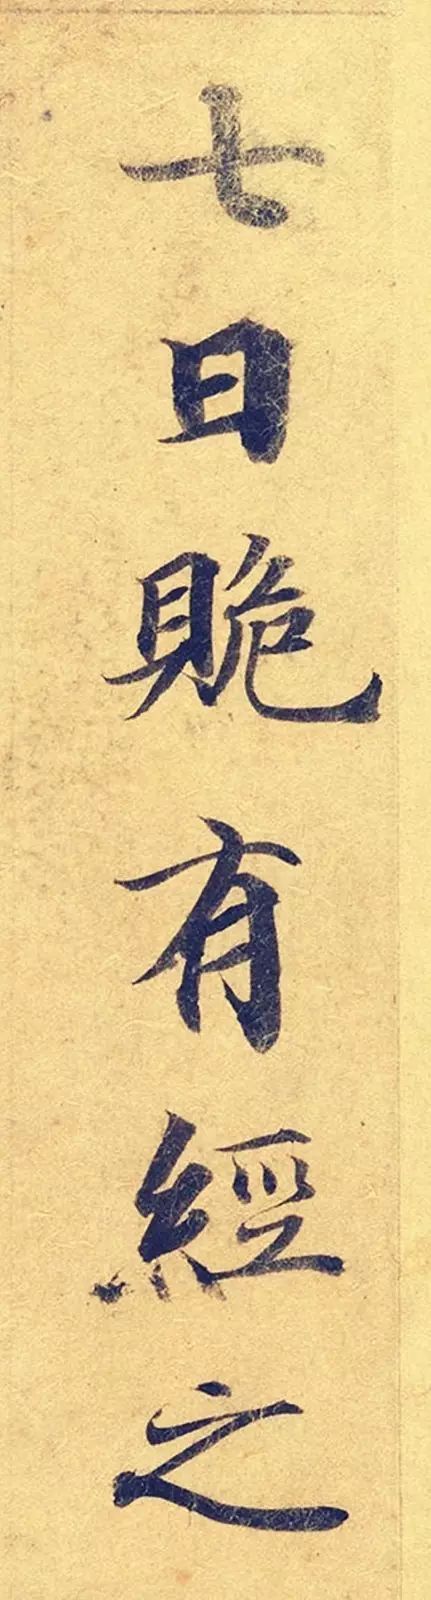 七日貹有經之